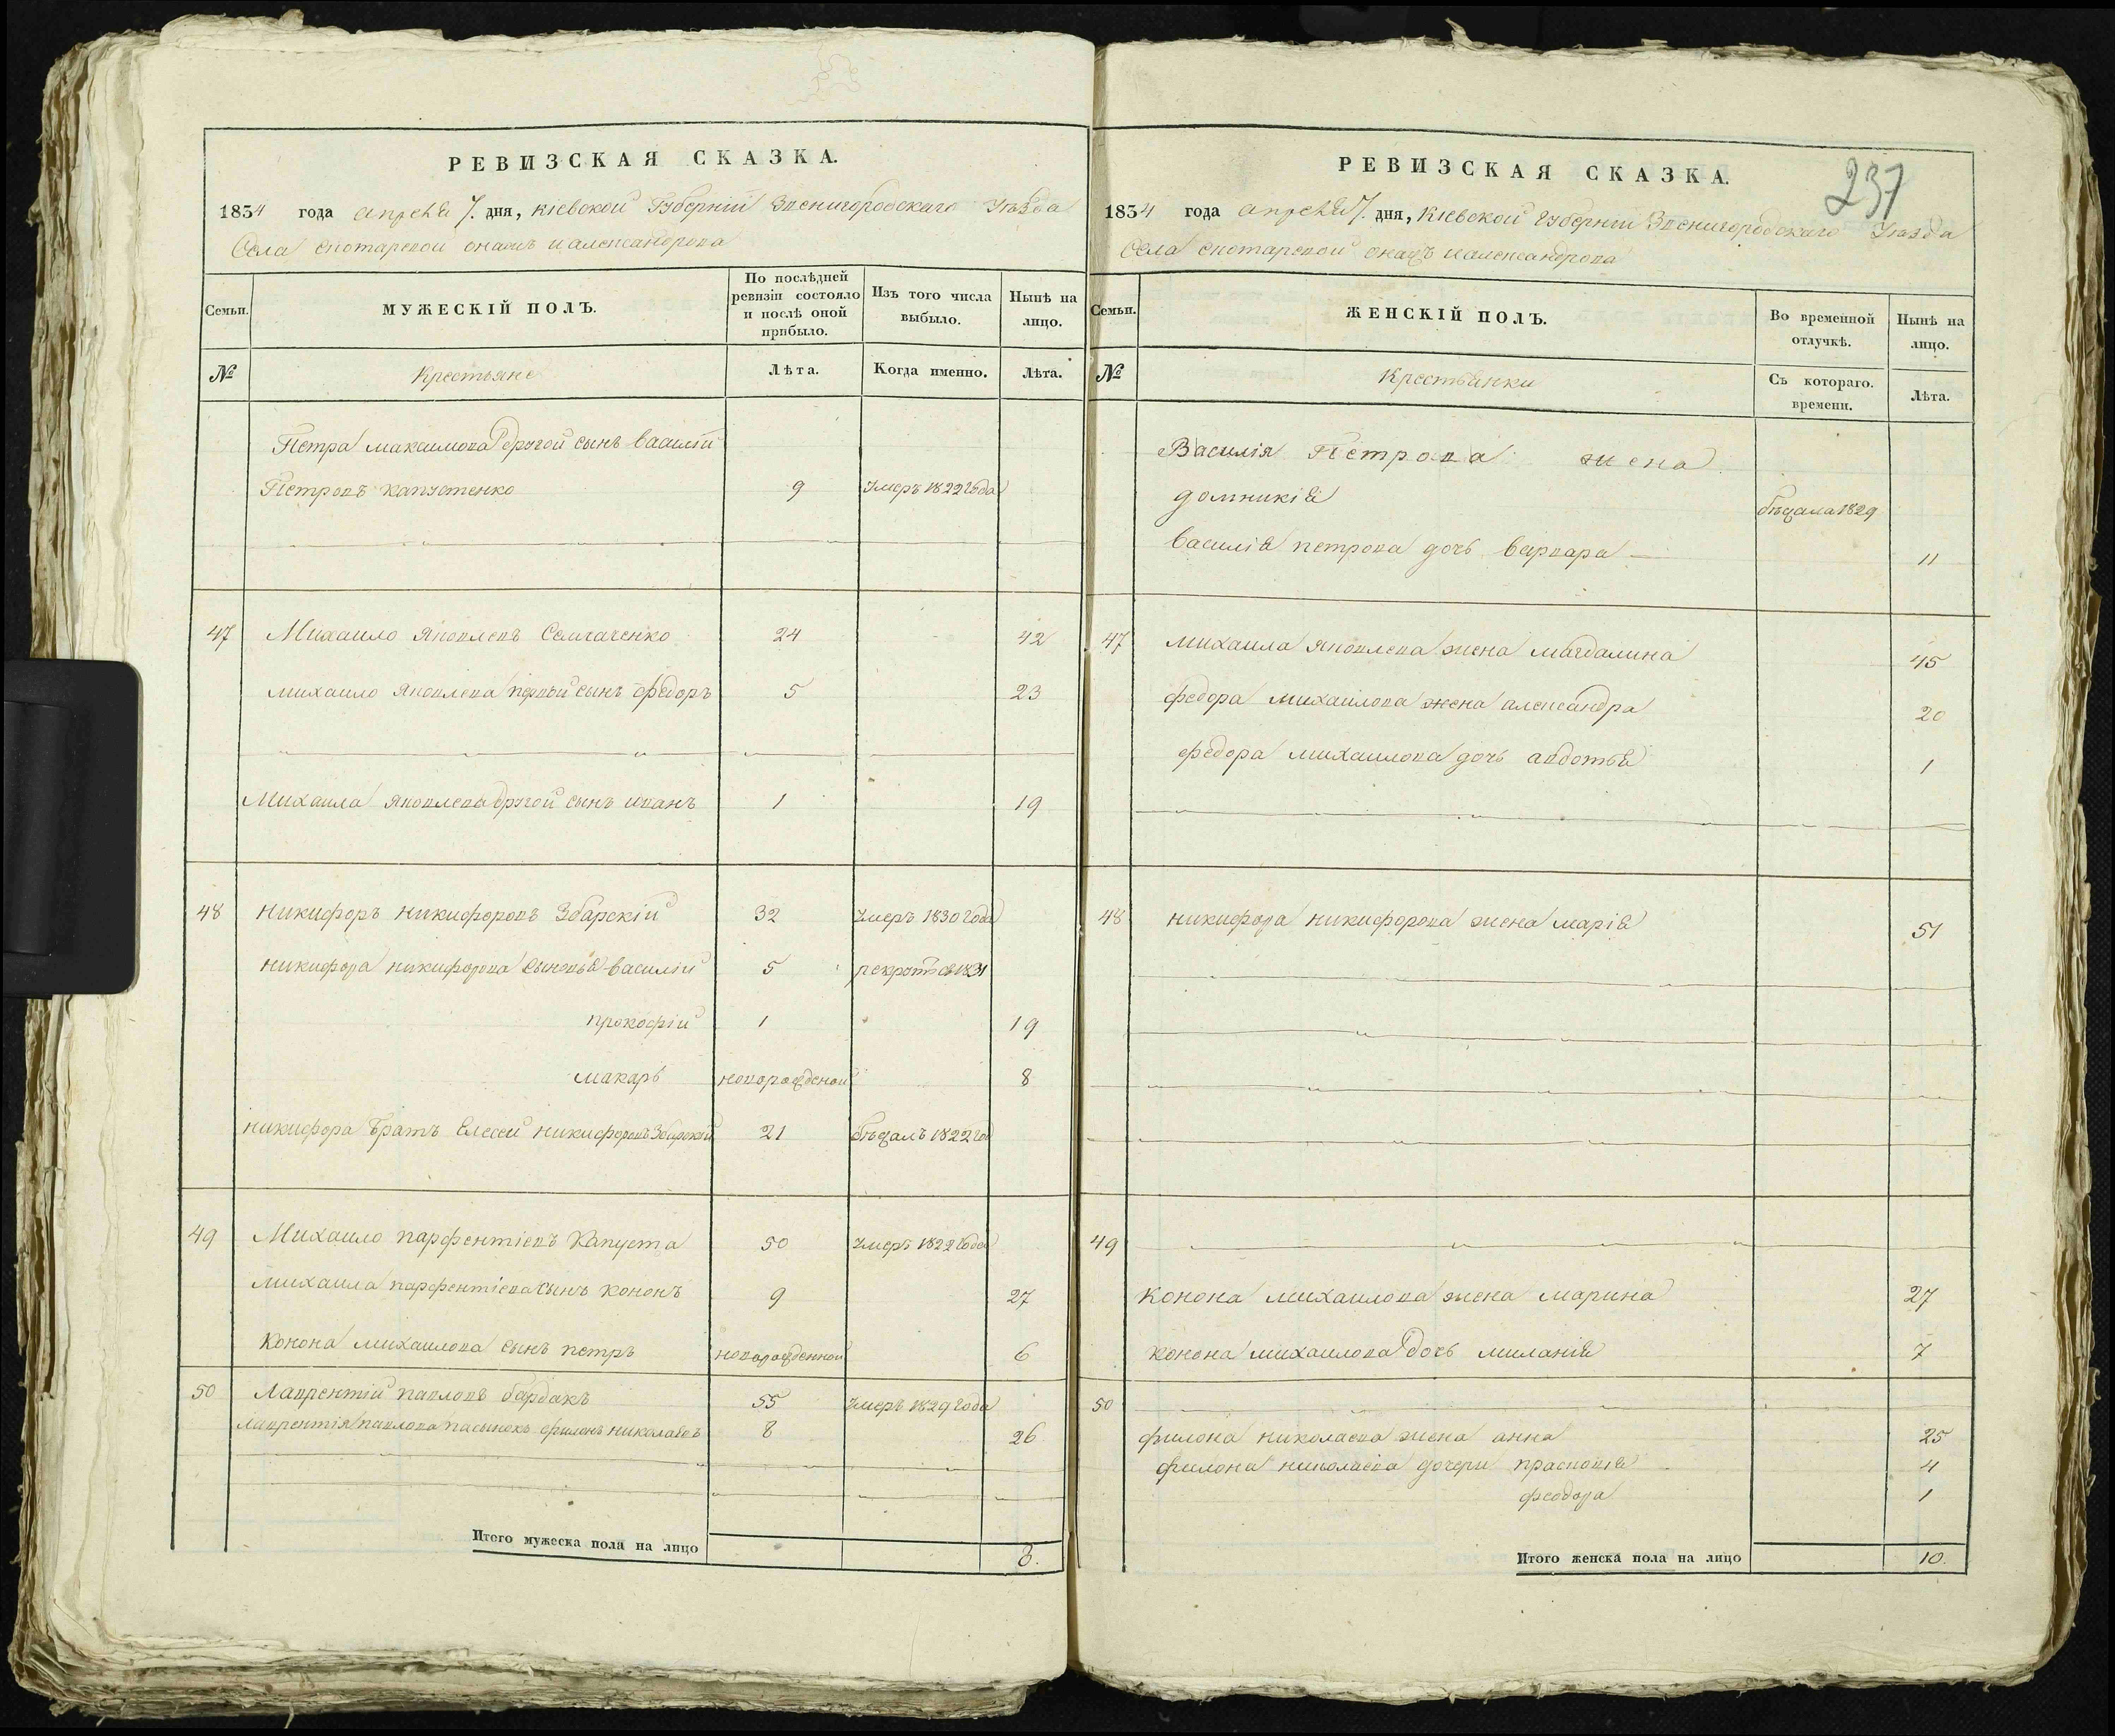 РЕВИЗСКАЯ СКАЗКА.
1834 года апреля 7. дня, Кіевской Губерніи Звенигородскаго Уѣзда
Села
Семьи.
МУЖЕСКІЙ ПОЛЪ.
По послѣдней ревизіи состояло и послѣ оной прибыло.
Изъ того числа выбыло.
Нынѣ на лицо.
№
Крестьяне
Лѣта.
Когда именно.
Лѣта.
Петра максимова другой сынъ василій
Петровъ капустенко 9 умеръ 1822 года
47 Михаило яковлевъ 24 42
михаило яковлева первый сынъ федоръ 5 23
Михаила яковлева другой сынъ иванъ 1 19
48 никифоръ никифоровъ Збарскій 32 умеръ 1830 года
никифора никифорова сыновья василій 5 1831
прокофій 1 19
макаръ новорожденой 8
никифора братъ Елесей никифоровъ Збарскій 21 бѣжалъ 1822
49 Михаило парфентіевъ Капуста 50 умеръ 1822 года
михаила парфентіева сынъ кононъ 9 27
Конона михаилова сынъ петръ новорожденной 6
50 Лаврентій павловъ бардакъ 55 умеръ 1829 года
лаврентія павлова пасынокъ филонъ николаевъ 8 26
Итого мужеска пола на лицо 8.
237
РЕВИЗСКАЯ СКАЗКА.
1834 года апреля 7. дня, Кіевской Губерніи Звенигородскаго Уѣзда
Села
Семьи.
ЖЕНСКІЙ ПОЛЪ.
Во временной отлучкѣ.
Нынѣ на лицо.
№
Крестьянки
Съ котораго. времени.
Лѣта.
Василія Петрова жена
домникія бѣжала 1829
василія петрова дочь варвара 11
47 михаила яковлева жена магдалина 45
федора михаилова жена александра 20
федора михаилова дочь авдотья 1
48 никифора никифорова жена марія 51
49
конона михаилова жена марина 27
конона михаилова дочь миланія 7
50
филона николаева жена анна 25
филона николаева дочери прасковія 4
феодора 1
Итого женска пола на лицо 10.